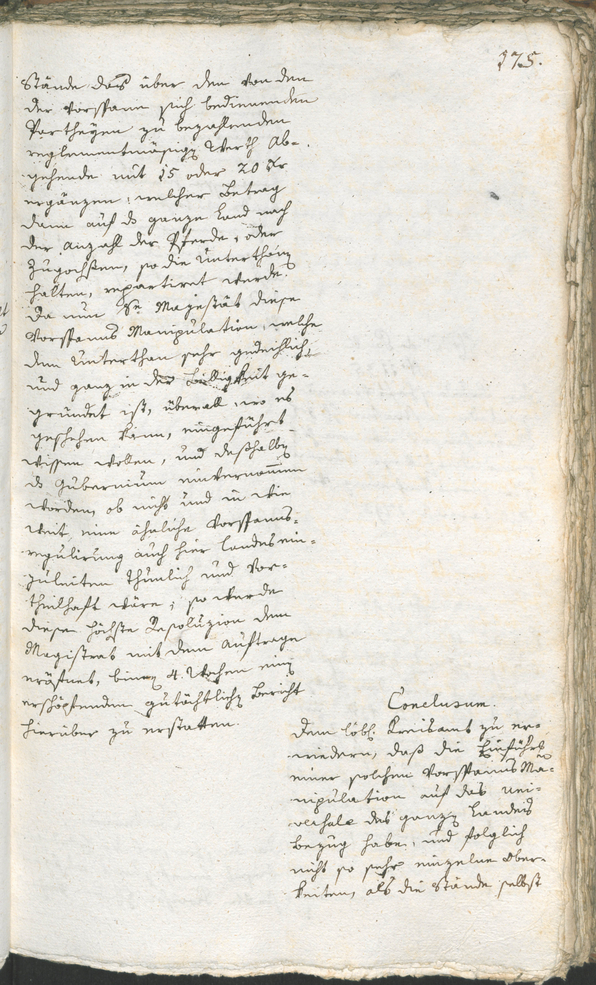 175.
Stände das über dem von den
der Vorspann sich bedienenden
Partheyen zu bezahlenden
reglementmäsigen Werth Ab-
gehende mit 15 oder 20 Xr
ergänzen, welcher Betrag
dann auf das ganze Land nach
der Anzahl der Pferde, oder
Zugochsen, so die Unterthanen
halten, repartiret werde.
Da nun Se. Majestät diese
Vorspanns Manipulation, welche
dem Unterthan sehr gedeihlich,
und ganz in der Billigkeit ge-
gründet ist, überall, wo es
geschehen kann, eingeführt
wissen wollen, und deßhalben
das Gubernium einvernommen
worden, ob nicht und in wie
weit eine ähnliche Vorspanns-
regulirung auch hier Landes ein-
zuleiten thunlich und vor-
theilhaft wäre; so werde
diese höchste Resoluzion dem
Magistrat mit dem Auftrage
eröfnet, binnen 4. Wochen einen
erschöpfenden gutächtlichen Bericht
hierüber zu erstatten.
Conclusum.
Dem löbl. Kreisamt zu er-
wiedern, daß die Einführung
einer solchen Vorspanns Ma-
nipulation auf das
des ganzen Landes
Bezug habe, und folglich
nicht so sehr einzelne Ober-
keiten, als die Stände selbst